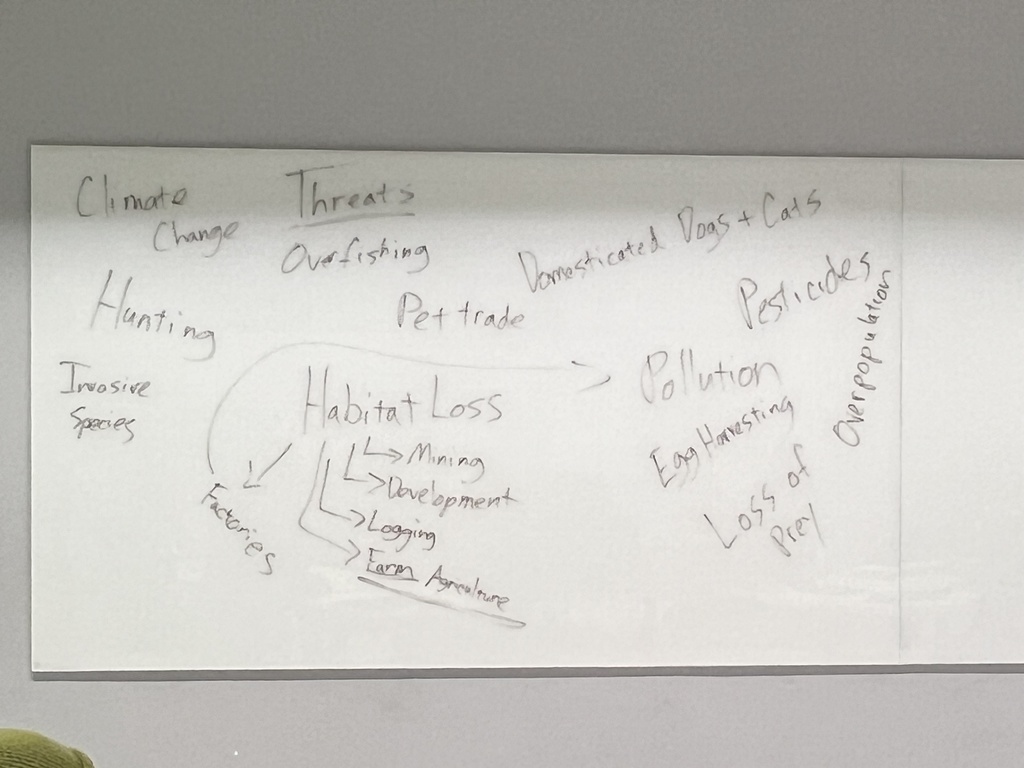 Climate
Change
Threats
Overfishing
Domesticated Dogs + Cats
Hunting
Pet trade
Pesticides
Overpopulation
Invasive
Species
Habitat Loss
Pollution
Egg Harvesting
Loss of
Prey
Mining
Development
Logging
Farm Agriculture
Factories